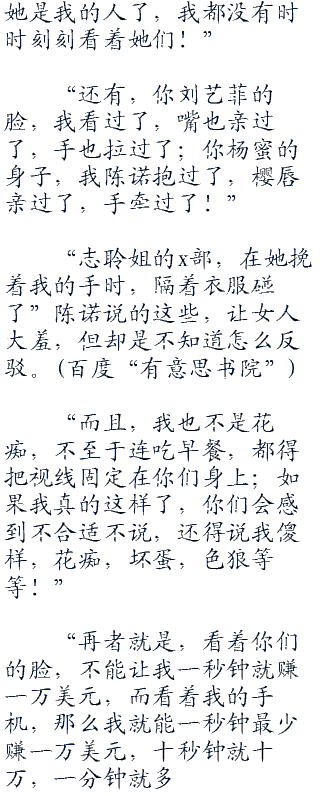 她是我的人了，我都没有时
时刻刻看着她们！”
“还有，你刘艺菲的
脸，我看过了，嘴也亲过
了，手也拉过了；你杨蜜的
身子，我陈诺抱过了，樱唇
亲过了，手牵过了！”
“志聆姐的x部，在她挽
着我的手时，隔着衣服碰
了”陈诺说的这些，让女人
大羞，但却是不知道怎么反
驳。(百度“有意思书院”)
“而且，我也不是花
痴，不至于连吃早餐，都得
把视线固定在你们身上；如
果我真的这样了，你们会感
到不合适不说，还得说我傻
样，花痴，坏蛋，色狼等
等！”
“再者就是，看着你们
的脸，不能让我一秒钟就赚
一万美元，而看着我的手
机，那么我就能一秒钟最少
赚一万美元，十秒钟就十
万，一分钟就多